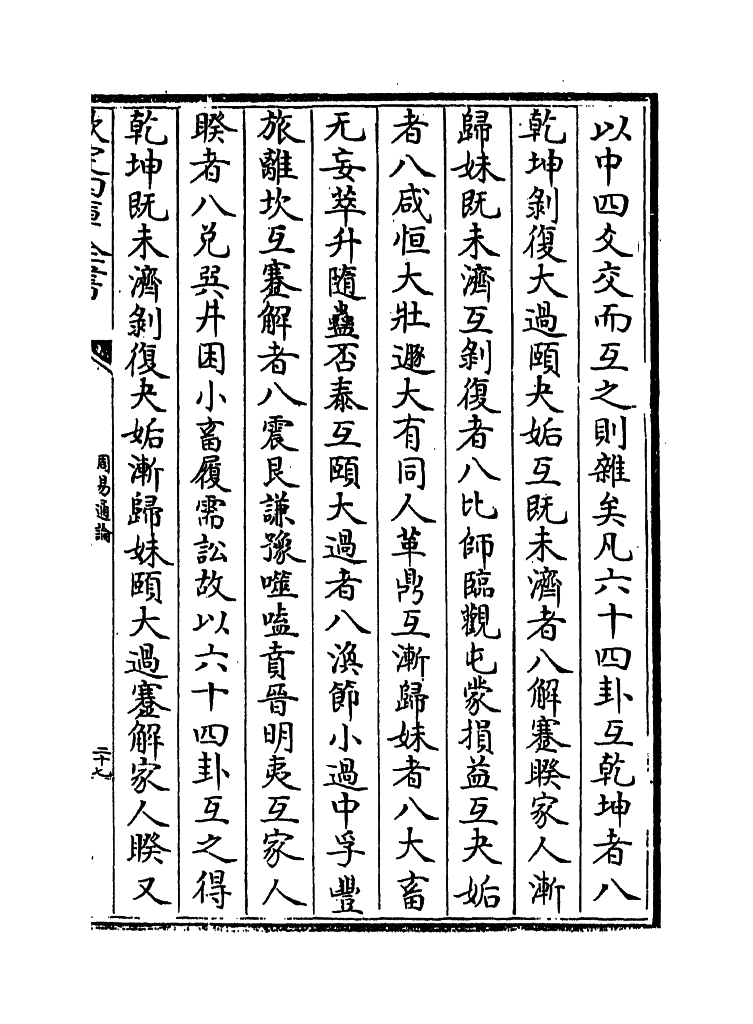 以中四爻交而互之則雜矣凡六十四卦互乾坤者八
乾坤剝復大過頤夬姤互既未濟者八解蹇睽家人漸
歸妹既未濟互剝復者八比師臨觀屯蒙損益互夬姤
者八咸恒大壯遯大有同人革鼎互漸歸妹者八大畜
无妄萃升隨蠱否泰互頤大過者八渙節小過中孚豐
旅離坎互蹇解者八震艮謙豫噬嗑賁晉明夷互家人
睽者八兌巽井困小畜履需訟故以六十四卦互之得
乾坤既未濟剝復夬姤漸歸妹頤大過蹇解家人睽又
周易通論
二十七